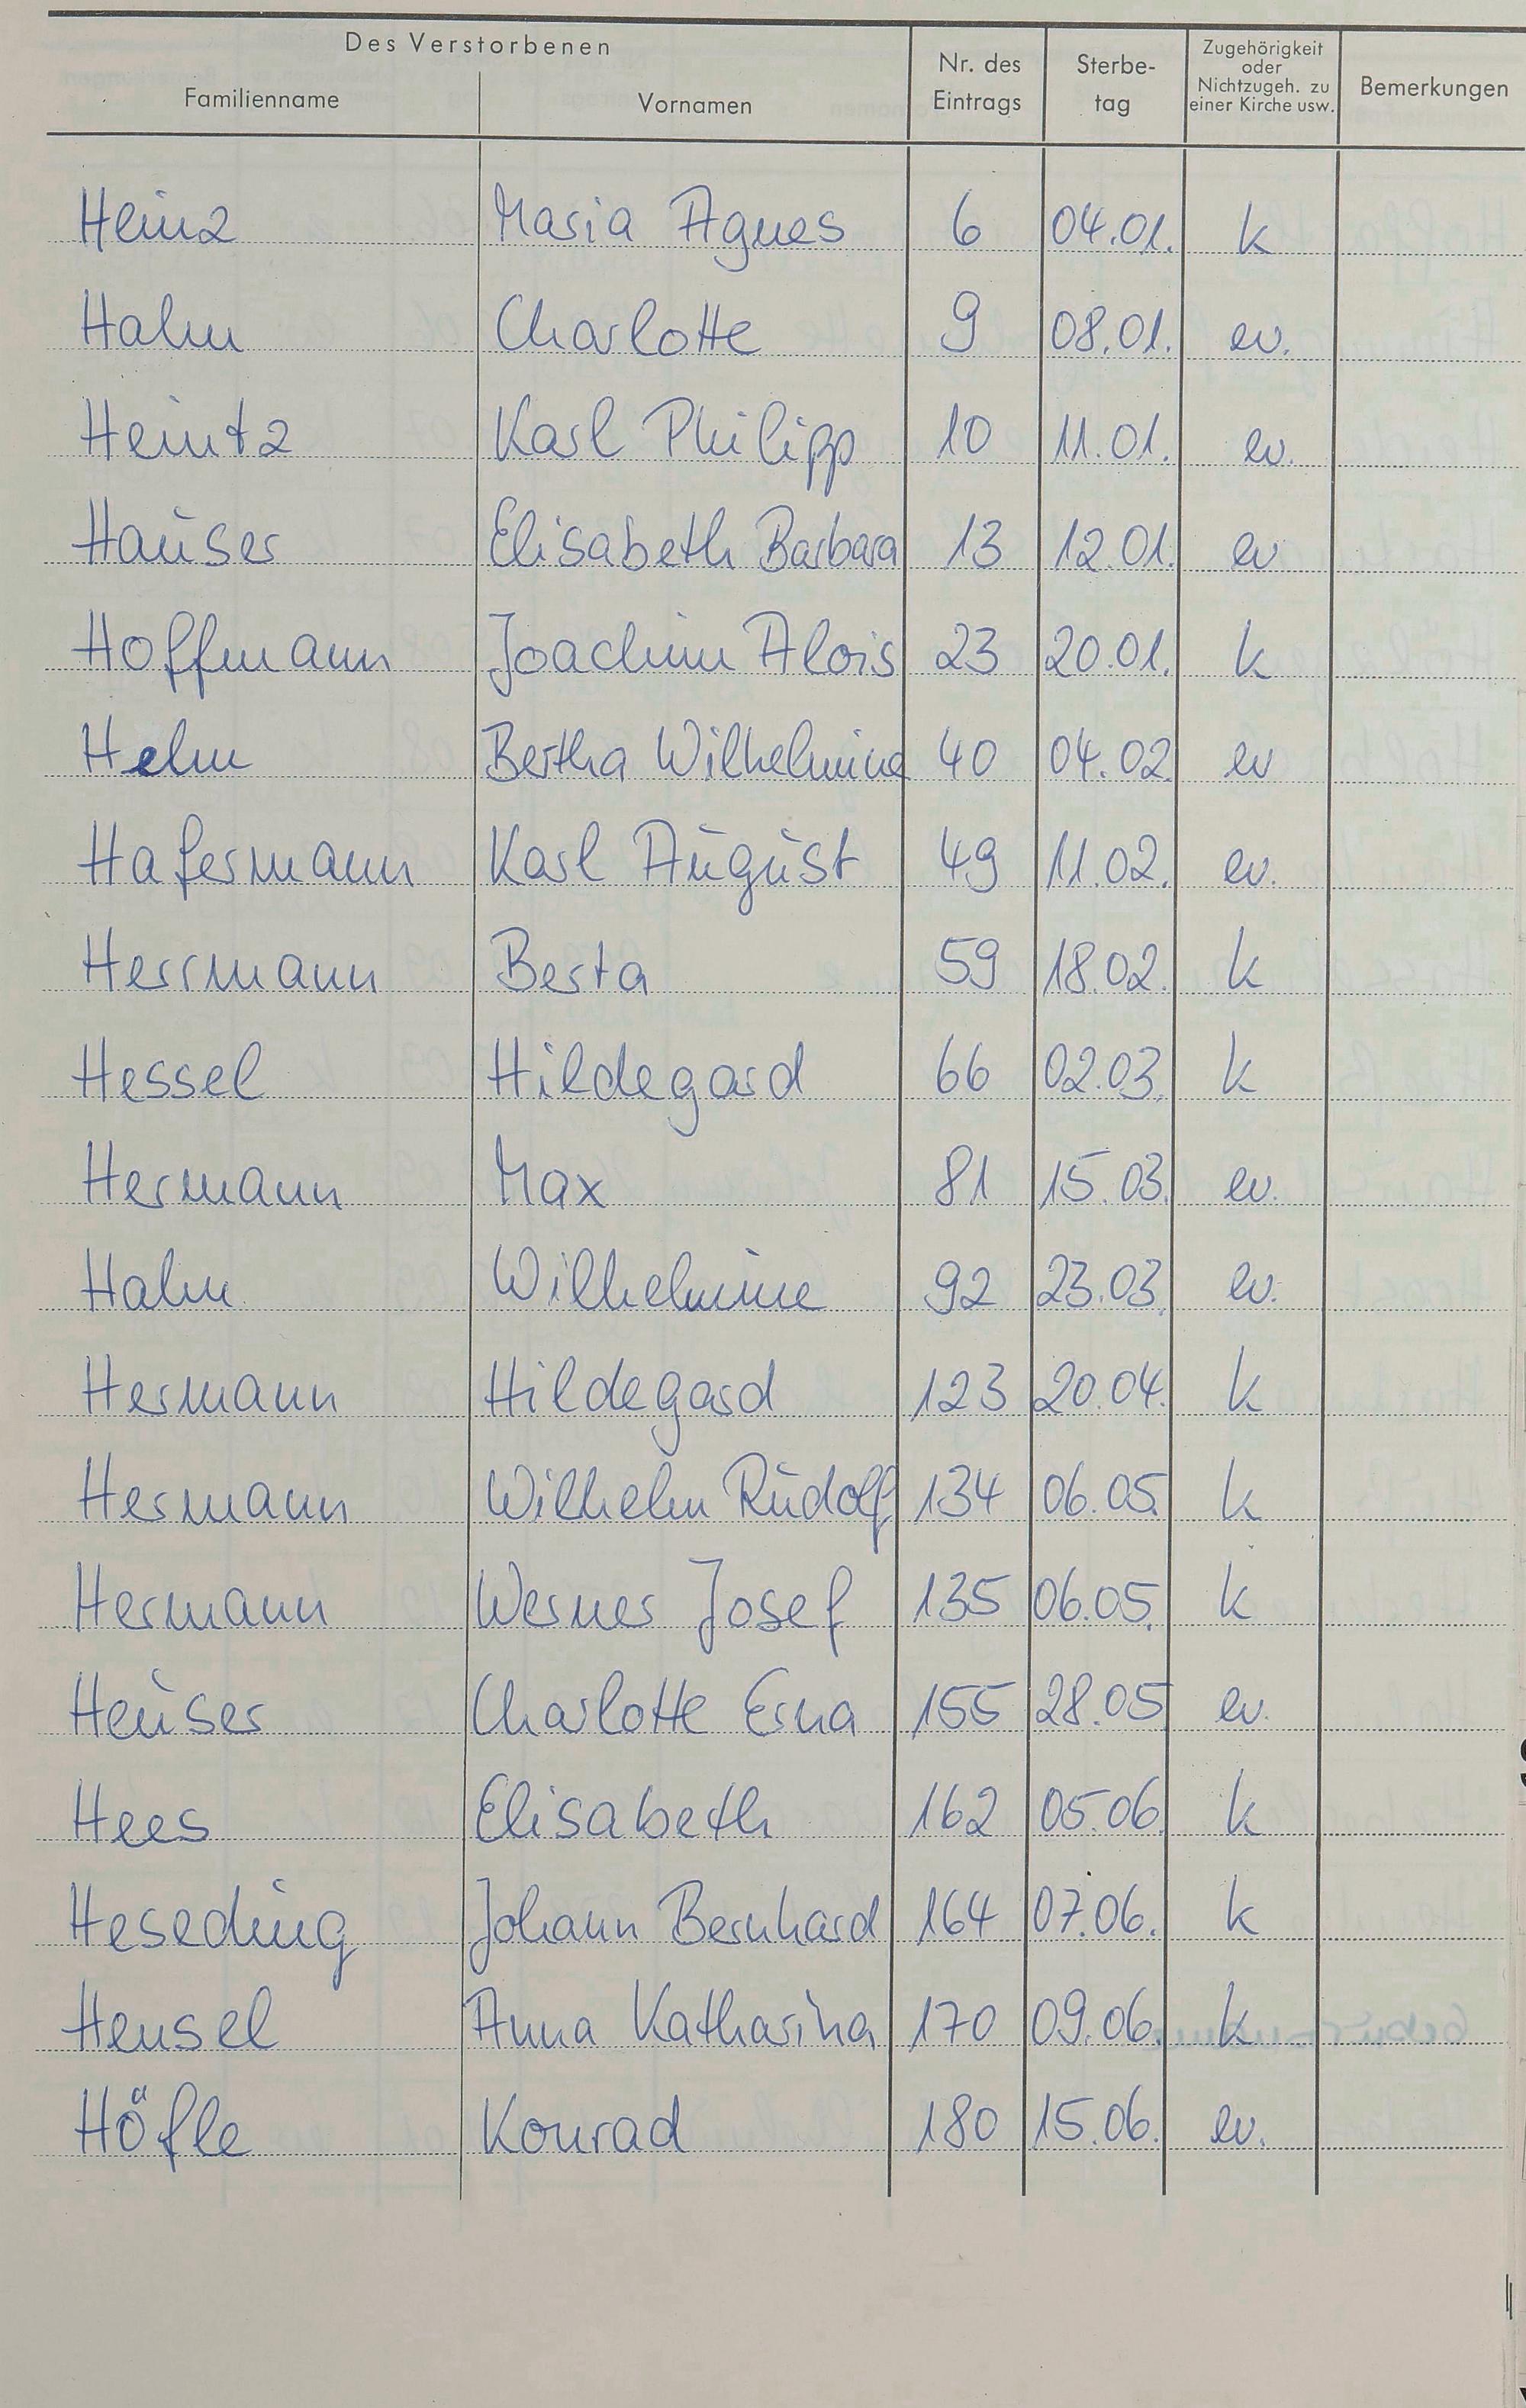 Des Verstorbenen
Familienname Vornamen Nr. des Eintrags Sterbe-tag Zugehörigkeit oder Nichtzugeh. zu einer Kirche usw. Bemerkungen
Heinz Maria Agnes 6 04.01. k
Hahn Charlotte 9 08.01. ev.
Heintz Karl Philipp 10 11.01. ev.
Hauser Elisabeth Barbara 13 12.01. ev
Hoffmann Joachim Alois 23 20.01. k
Helm Bertha Wilhelmine 40 04.02. ev
Hafermann Karl August 49 11.02. ev.
Herrmann Berta 59 18.02. k
Hessel Hildegard 66 02.03. k
Hermann Max 81 15.03. ev.
Hahn Wilhelmine 92 23.03. ev.
Hermann Hildegard 123 20.04. k
Hermann Wilhelm Rudolf 134 06.05. k
Hermann Werner Josef 135 06.05. k
Heuser Charlotte Erna 155 28.05 ev.
Hees Elisabeth 162 05.06. k
Heseding Johann Bernhard 164 07.06. k
Hensel Anna Katharina 170 09.06. k
Höfle Konrad 180 15.06. ev.